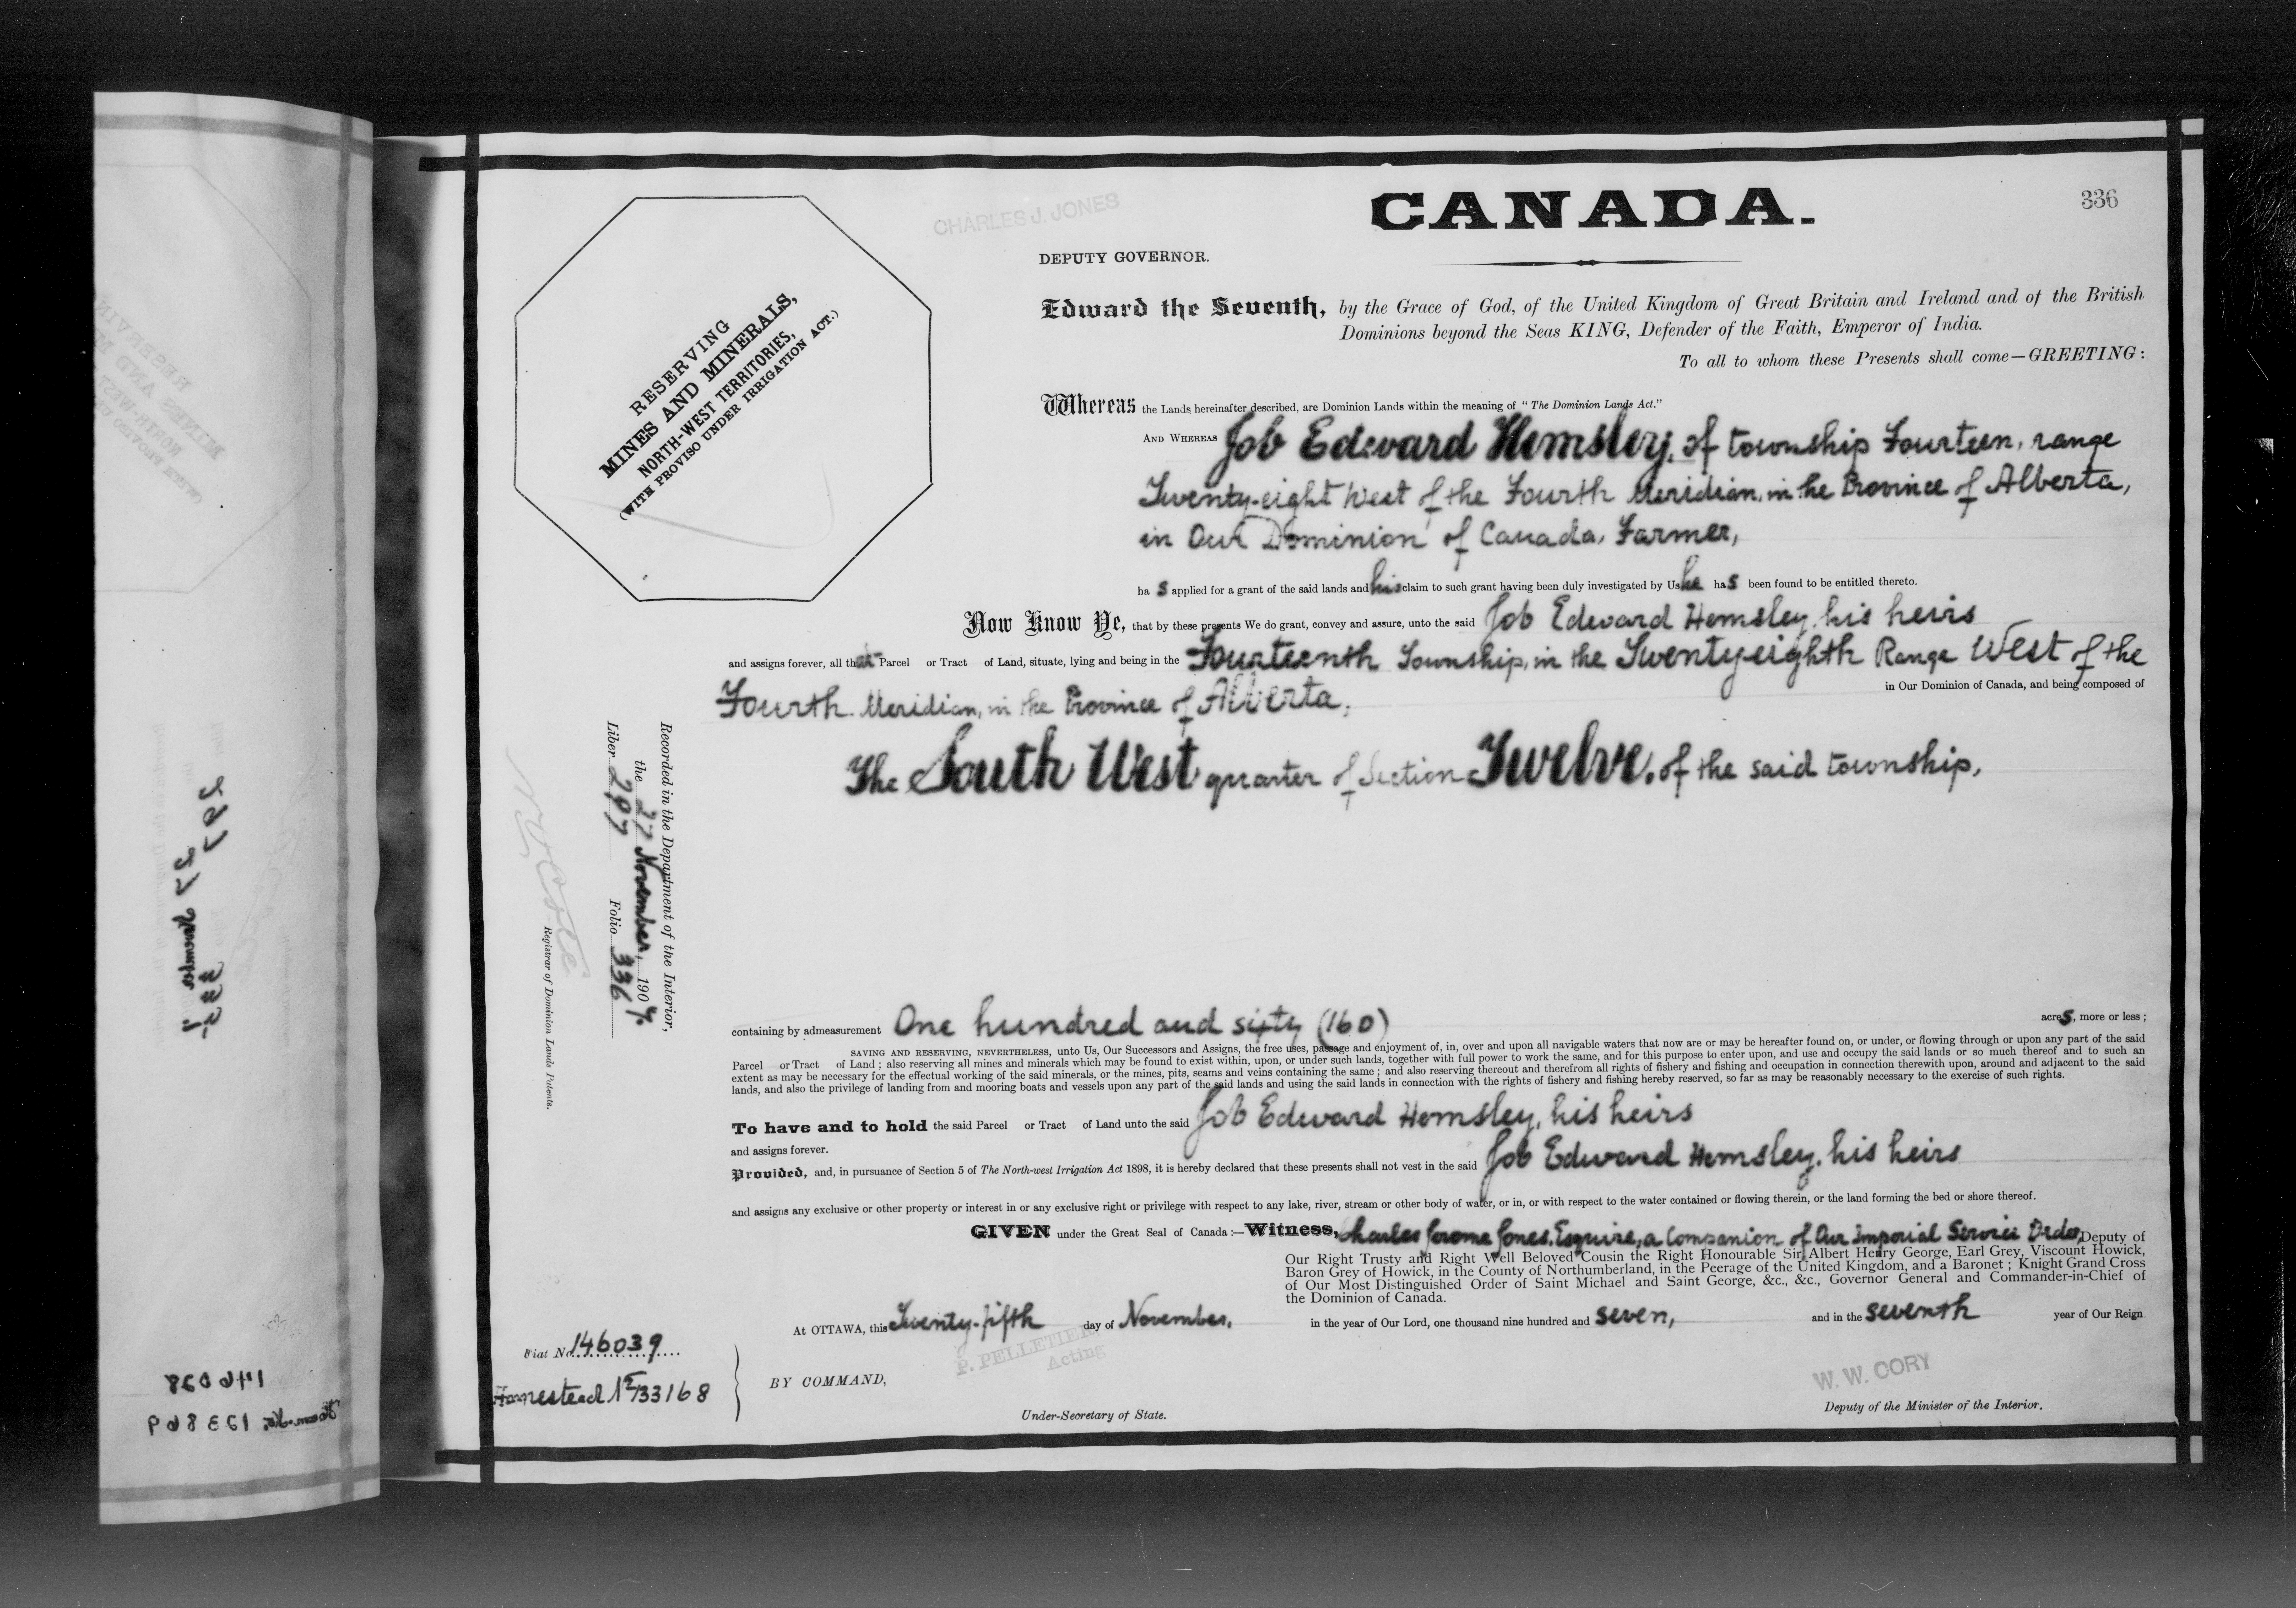 CANADA.
336
CHARLES J. JONES
DEPUTY GOVERNOR.
RESERVING
MINES AND MINERALS,
NORTH-WEST TERRITORIES,
(WITH PROVISO UNDER IRRIGATION ACT.)
Edward the Seventh, by the Grace of God, of the United Kingdom of Great Britain and Ireland and of the British
Dominions beyond the Seas KING, Defender of the Faith, Emperor of India.
To all to whom these Presents shall come—GREETING:
Whereas the Lands hereinafter described, are Dominion Lands within the meaning of "The Dominion Lands Act."
AND WHEREAS Job Edward Hemsley, of township Fourteen, range
Twenty-eight West of the Fourth Meridian, in the Province of Alberta,
in Our Dominion of Canada, Farmer,
ha s applied for a grant of the said lands and his claim to such grant having been duly investigated by Us he has been found to be entitled thereto.
Now Know Ye, that by these presents We do grant, convey and assure, unto the said Job Edward Hemsley, his heirs
and assigns forever, all that Parcel or Tract of Land, situate, lying and being in the Fourteenth Township, in the Twenty-eighth Range West of the
in Our Dominion of Canada, and being composed of
Fourth Meridian, in the Province of Alberta,
The South West quarter of Section Twelve, of the said township,
Recorded in the Department of the Interior,
the 27 November, 1907.
Liber 297 Folio 336
Registrar of Dominion Lands Patents.
containing by admeasurement One hundred and sixty (160) acres, more or less;
SAVING AND RESERVING, NEVERTHELESS, unto Us, Our Successors and Assigns, the free uses, passage and enjoyment of, in, over and upon all navigable waters that now are or may be hereafter found on, or under, or flowing through or upon any part of the said
Parcel or Tract of Land; also reserving all mines and minerals which may be found to exist within, upon, or under such lands, together with full power to work the same, and for this purpose to enter upon, and use and occupy the said lands or so much thereof and to such an
extent as may be necessary for the effectual working of the said minerals, or the mines, pits, seams and veins containing the same; and also reserving thereout and therefrom all rights of fishery and fishing and occupation in connection therewith upon, around and adjacent to the said
lands, and also the privilege of landing from and mooring boats and vessels upon any part of the said lands and using the said lands in connection with the rights of fishery and fishing hereby reserved, so far as may be reasonably necessary to the exercise of such rights.
To have and to hold the said Parcel or Tract of Land unto the said Job Edward Hemsley, his heirs
and assigns forever.
Provided, and, in pursuance of Section 5 of The North-west Irrigation Act 1898, it is hereby declared that these presents shall not vest in the said Job Edward Hemsley, his heirs
and assigns any exclusive or other property or interest in or any exclusive right or privilege with respect to any lake, river, stream or other body of water, or in, or with respect to the water contained or flowing therein, or the land forming the bed or shore thereof.
GIVEN under the Great Seal of Canada:—Witness, Charles Jerome Jones, Esquire, a Companion of Our Imperial Service Order, Deputy of
Our Right Trusty and Right Well Beloved Cousin the Right Honourable Sir Albert Henry George, Earl Grey, Viscount Howick,
Baron Grey of Howick, in the County of Northumberland, in the Peerage of the United Kingdom, and a Baronet; Knight Grand Cross
of Our Most Distinguished Order of Saint Michael and Saint George, &c., &c., Governor General and Commander-in-Chief of
the Dominion of Canada.
At OTTAWA, this Twenty-fifth day of November, in the year of Our Lord, one thousand nine hundred and seven, and in the seventh year of Our Reign
Fiat No. 146039
Homestead 133168
BY COMMAND,
P. PELLETIER
Acting
Under-Secretary of State.
W. W. CORY
Deputy of the Minister of the Interior.